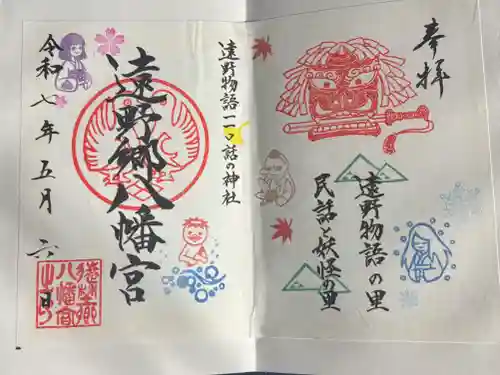 奉拝
遠野物語の里
民話と妖怪の里
遠野物語一一〇話の神社
遠野郷八幡宮
令和七年五月六日
遠野郷
八幡宮
之印